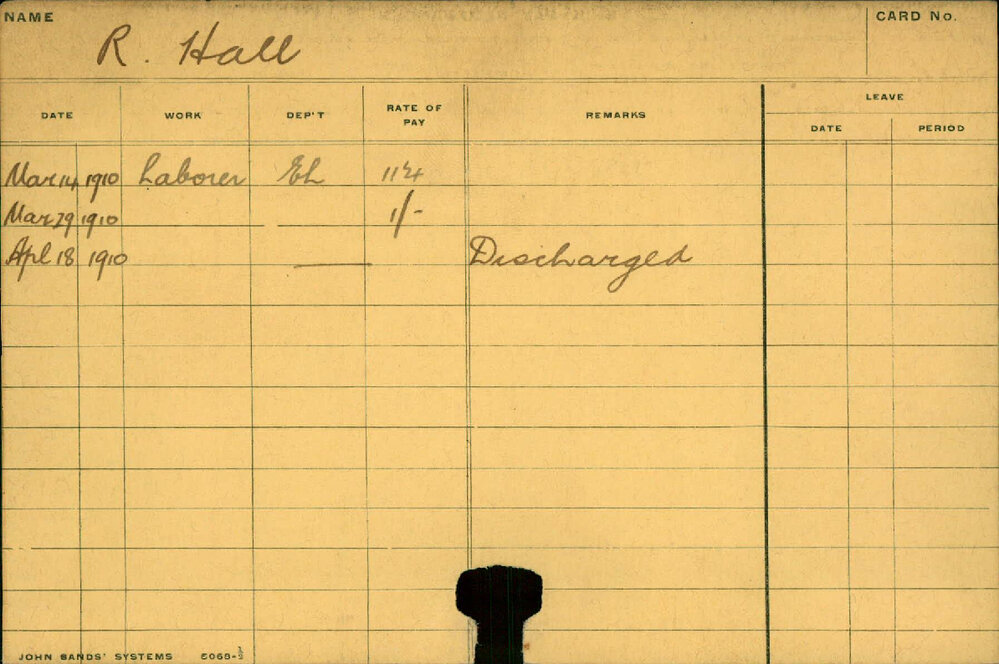 NAME
CARD No.
R. Hall
DATE WORK DEP'T RATE OF PAY REMARKS LEAVE
DATE PERIOD
Mar 14 1910 Laborer EL
Mar 29 1910 1/-
Apl 18 1910 Discharged
JOHN SANDS' SYSTEMS 5068-½